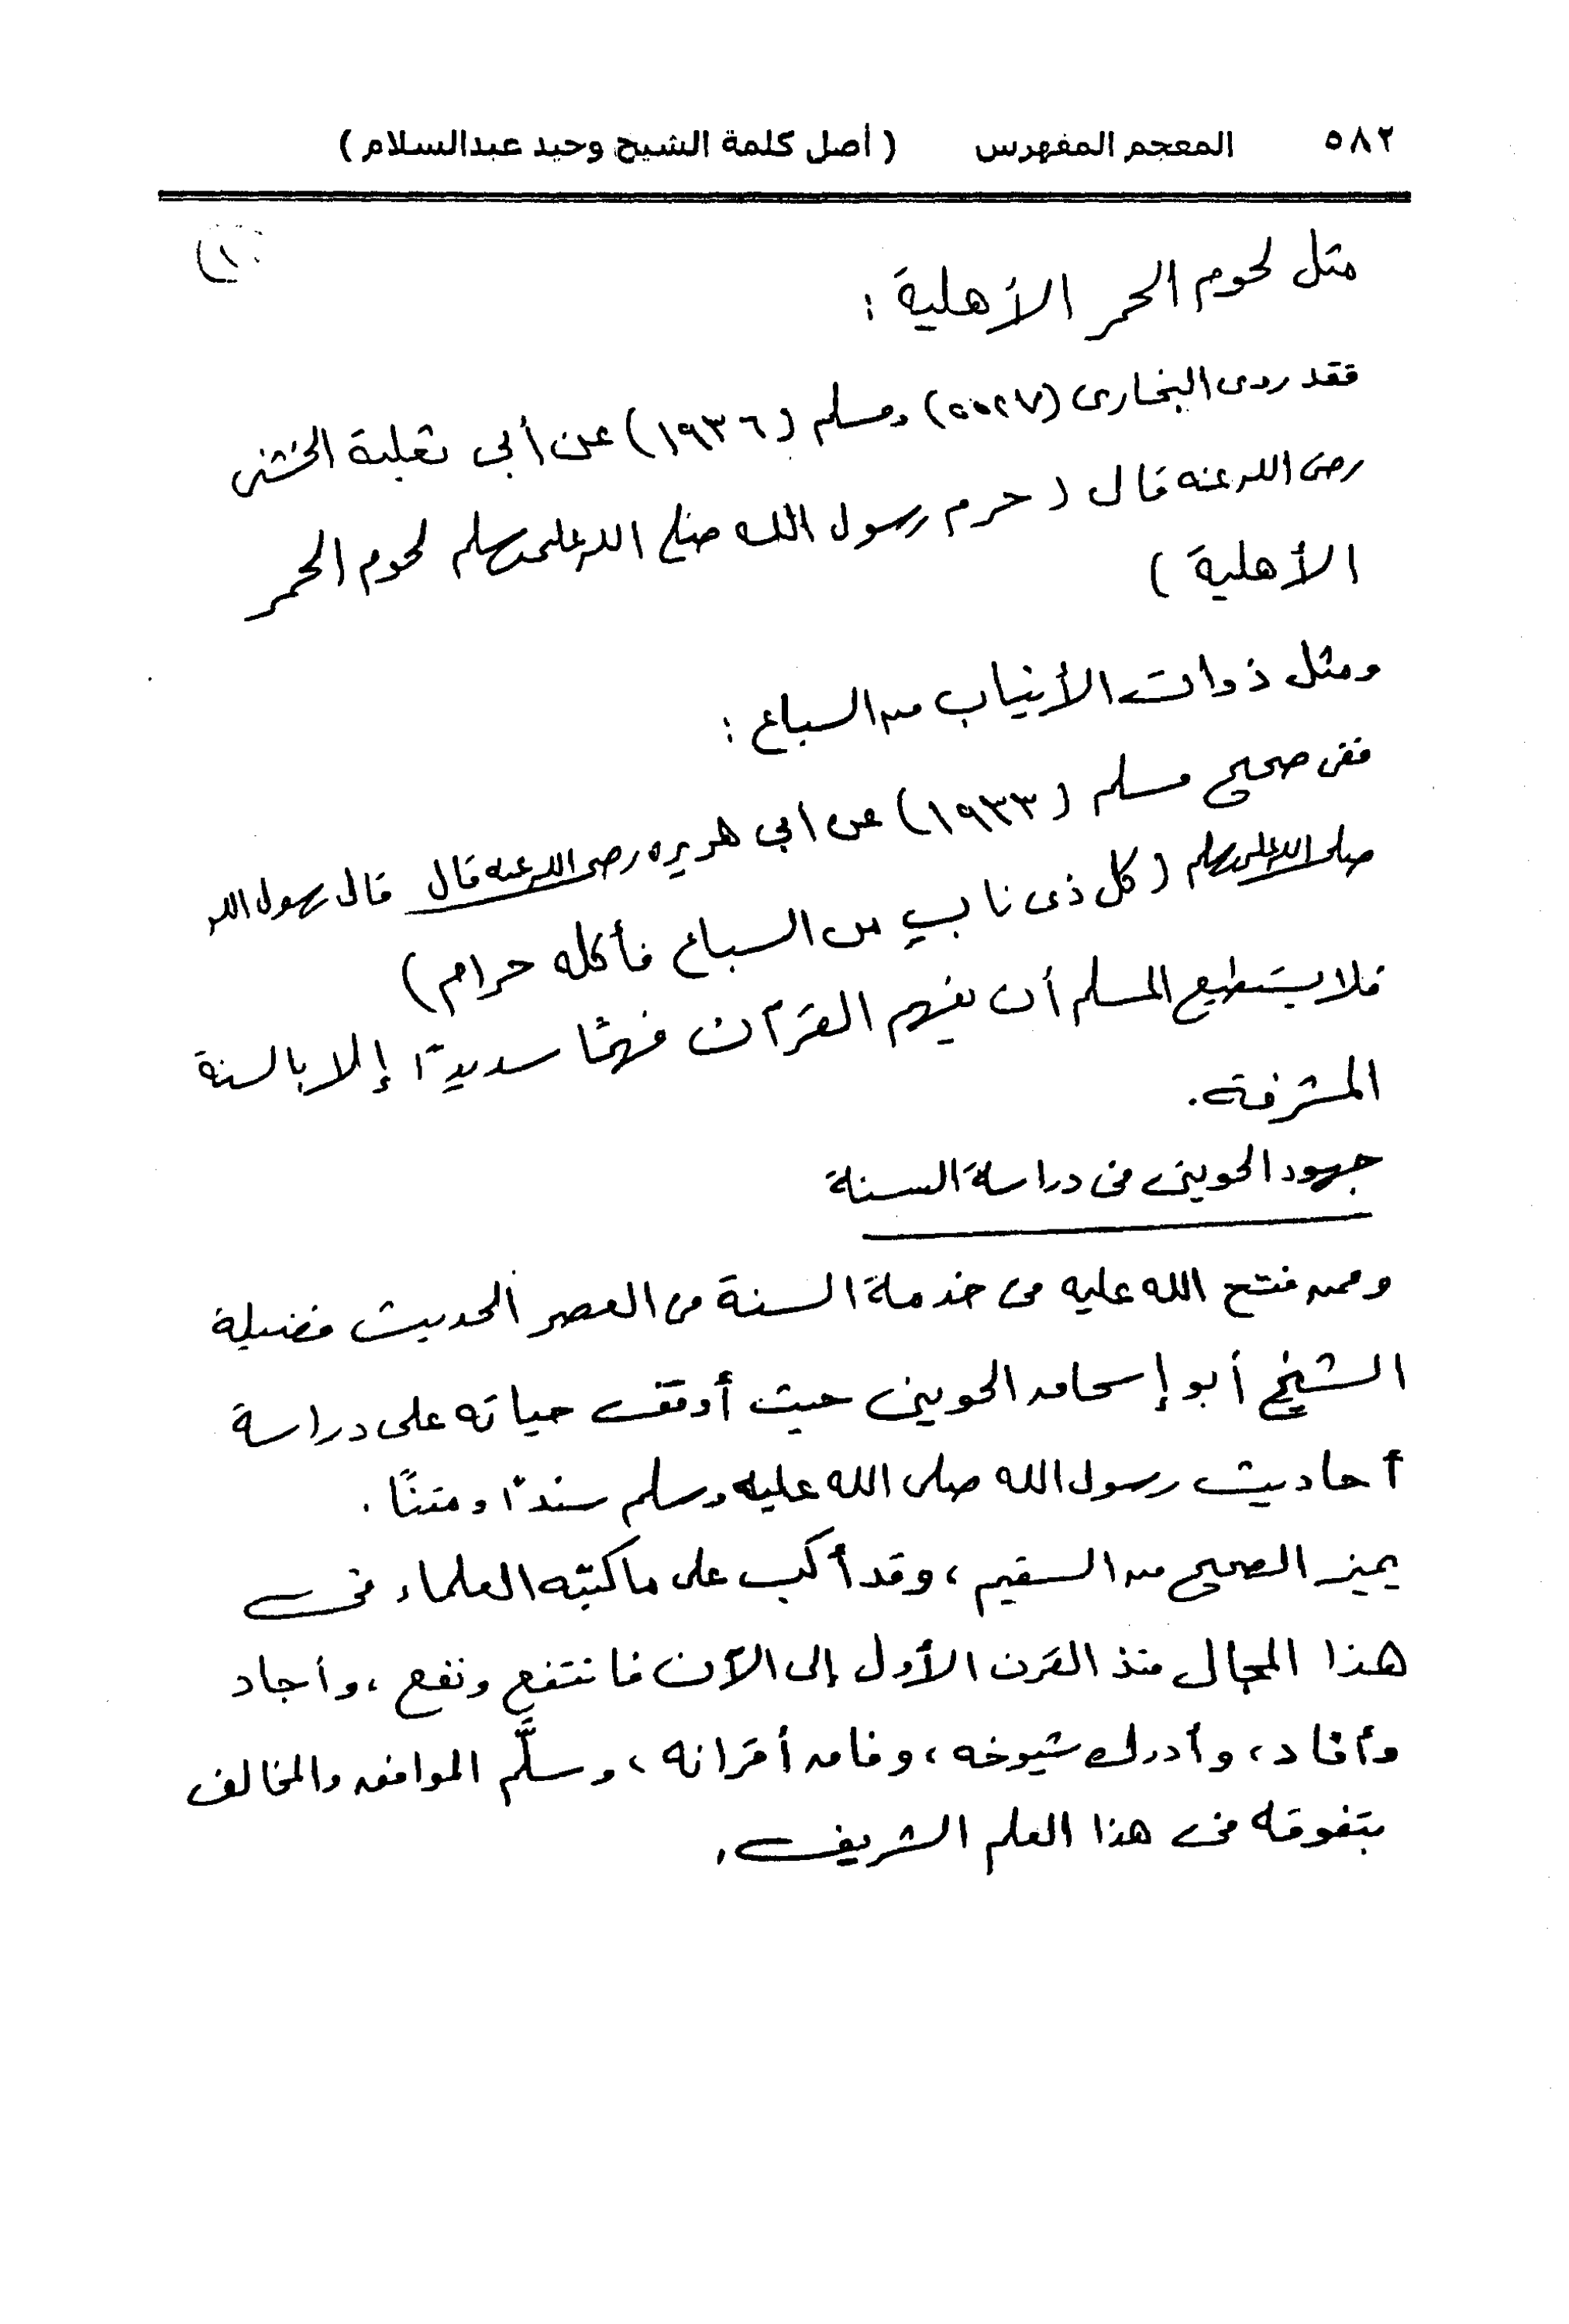 ٥٨٢ المعجم المفهرس ( أصل كلمة الشيخ وحيد عبدالسلام )
(١٠)
مثل لحوم الحمر الأهلية :
فقد روى البخارى (٥٥٢٧) ومسلم (١٩٣٦) عن أبى ثعلبة الخشنى
رضى الله عنه قال ( حرم رسول الله صلى الله عليه وسلم لحوم الحمر
الأهلية )
ومثل ذوات الأنياب من السباع :
ففى صحيح مسلم (١٩٣٣) عن أبى هريره رضى الله عنه قال قال رسول الله
صلى الله عليه وسلم ( كل ذى ناب من السباع فأكله حرام )
فلا يستطيع المسلم أن يفهم القرآن فهمًا سديدًا إلا بالسنة
المشرفة .
جهود الحوينى فى دراسة السنة
وممن فتح الله عليه فى خدمة السنة فى العصر الحديث فضيلة
الشيخ أبو إسحاق الحوينى حيث أوقف حياته على دراسة
أحاديث رسول الله صلى الله عليه وسلم سندًا ومتنًا .
يميز الصحيح من السقيم ، وقد أكب على ما كتبه العلماء فى
هذا المجال منذ القرن الأول إلى الآن فانتفع ونفع ، وأجاد
وأفاد ، وأدرك شيوخه ، وفاق أقرانه ، وسلَّم الموافق والمخالف
بتفوقه فى هذا العلم الشريف .